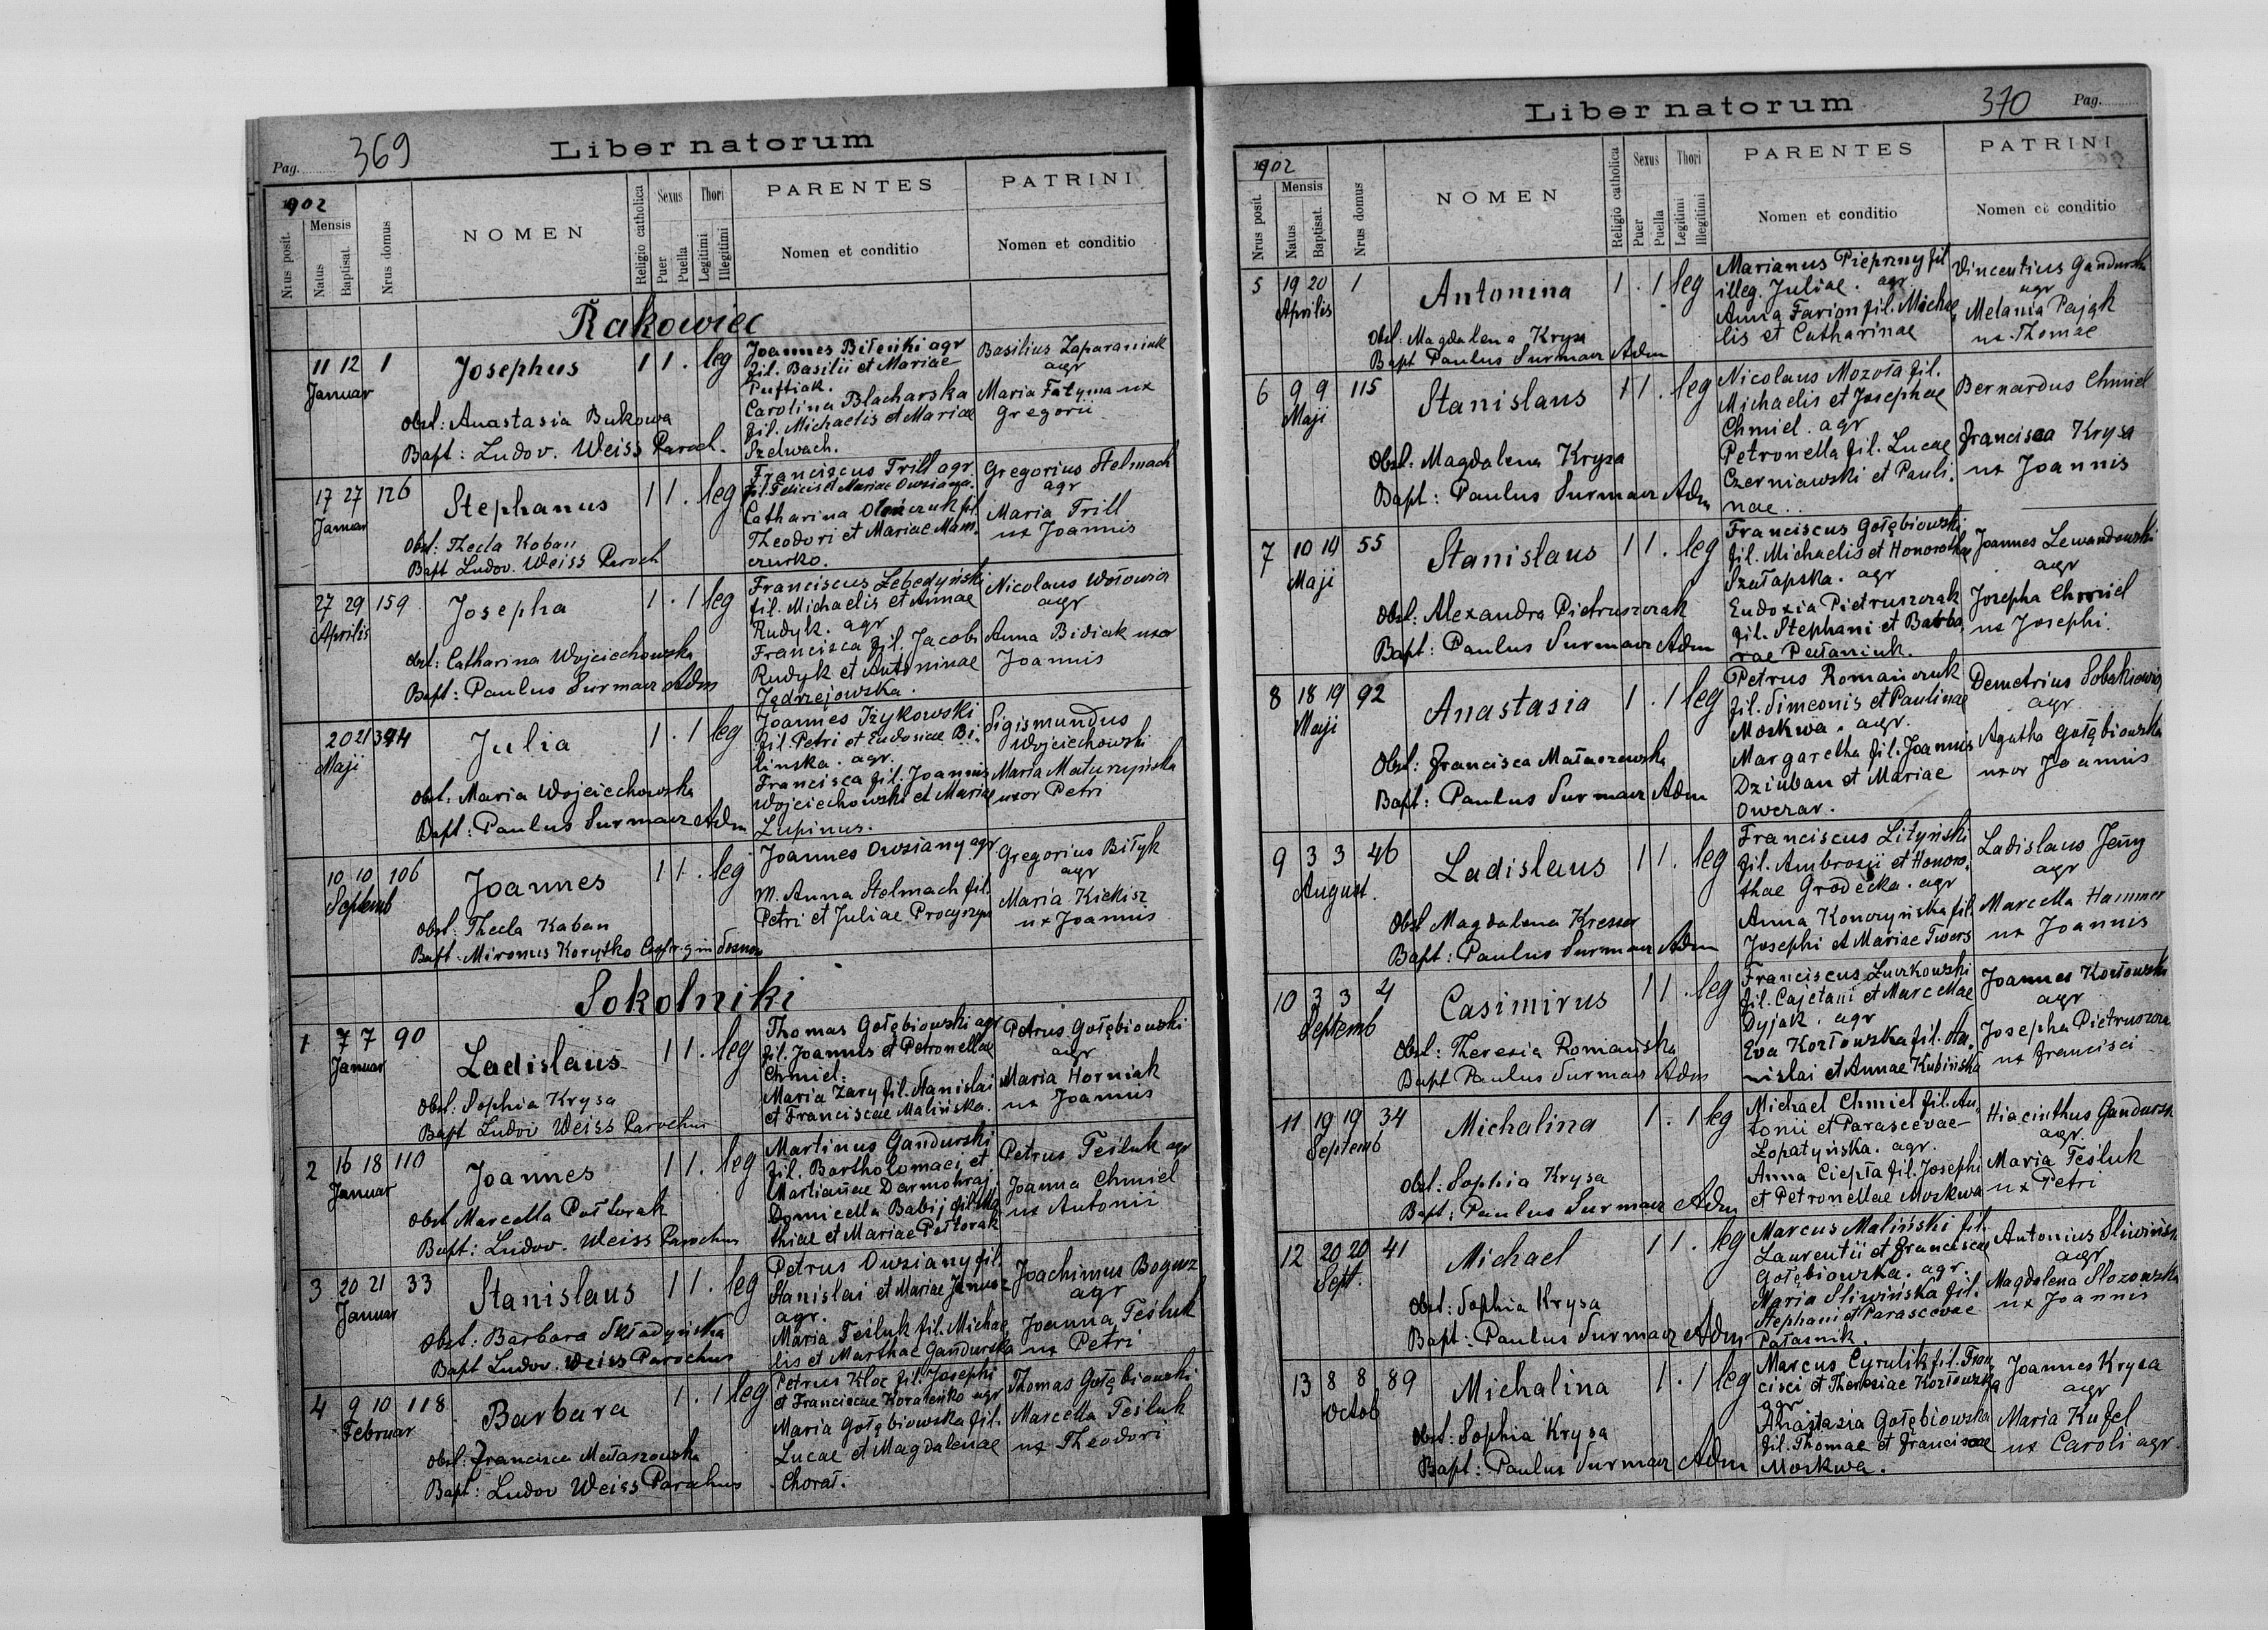 Pag. 369
Liber natorum
1902
Nrus posit.
Mensis
Natus
Baptisat.
Nrus domus
NOMEN
Religio catholica
Sexus
Puer
Puella
Thori
Legitimi
Illegitimi
PARENTES
Nomen et conditio
PATRINI
Nomen et conditio
Rakowiec
11 12 1 Josephus 1 1 . leg
Januar
Obst: Anastasia Bukowa
Bapt: Ludov. Weiss Paroch.
Joannes Biłeńki agr
fil. Basilii et Mariae
Puftiak.
Carolina Blacharska
fil. Michaelis et Mariae
Szelwach.
Basilius Zaparaniuk
agr
Maria Fatyma ux
Gregorii
17 27 126 Stephanus 1 1 . leg
Januar
Obst: Thecla Koban
Bapt Ludov. Weiss Paroch
Franciscus Trill agr.
fil. Felicis et Mariae Owsiana.
Catharina fil.
Theodori et Mariae Mam.
czurko.
Gregorius Stelmach
agr
Maria Trill
ux Joannis
27 29 159 Josepha 1 . 1 leg
Aprilis
Obst: Catharina Wojciechowska
Bapt: Paulus Surmacz Adm
Franciscus Łebedyński
fil. Michaelis et Annae
Rudyk. agr
Francisca fil. Jacobi
Rudyk et Antoninae
Jędrzejowska.
Nicolaus Wołowicz
agr
Anna Bidiak uxor
Joannis
20 21 394 Julia 1 . 1 leg
Maji
Obst: Maria Wojciechowska
Bapt: Paulus Surmacz Adm
Joannes Iżykowski
fil. Petri et Eudosiae Bi.
linska. agr.
Francisca fil. Joannis
Wojciechowski et Mariae
Lupinus.
Sigismundus
Wojciechowski
Maria Maturzyńska
uxor Petri
10 10 106 Joannes 1 1 . leg
Septemb
Obst: Thecla Kaban
Bapt. Mironus Korytko
Joannes Owsiany agr.
M. Anna Stelmach fil.
Petri et Juliae Procyszyn
Gregorius Biłyk
agr
Maria Kiekisz
ux Joannis
Sokolniki
1 7 7 90 Ladislaus 1 1 . leg
Januar
Obst: Sophia Krysa
Bapt Ludov Weiss Parochus
Thomas Gołębiowski agr
fil. Joannis et Petronellae
Chmiel.
Maria Zary fil. Stanislai
et Franciscae Malińska.
Petrus Gołębiowski
agr
Maria Horniak
ux Joannis
2 16 18 110 Joannes 1 1 . leg
Januar
Obst Marcella Połtorak
Bapt: Ludov. Weiss Parochus
Martinus Gandurski
fil. Bartholomaei et
Martianae Darmohraj
Domicella Babij fil. Ma
thiae et Mariae Połtorak
Petrus Teśluk agr
Joanna Chmiel
ux Antonii
3 20 21 33 Stanislaus 1 1 . leg
Januar
Obst: Barbara Składyńska
Bapt Ludov. Weiss Parochus
Petrus Owsiany fil.
Stanislai et Mariae Janusz
agr.
Maria Teśluk fil. Michae
lis et Marthae Gandurska
Joachimus Bogusz
agr
Joanna Teśluk
ux Petri
4 9 10 118 Barbara 1 . 1 leg
Februar
Obst: Francisca Małaszowska
Bapt: Ludov Weiss Parochus
Petrus Kloc fil. Josephi
et Franciscae Koralenko agr
Maria Gołębiowska fil.
Lucae et Magdalenae
Chorał.
Thomas Gołębiowski
Marcella Teśluk
ux Theodori
Liber natorum
370 Pag.
1902
Nrus posit.
Mensis
Natus.
Baptisat.
Nrus domus
NOMEN
Religio catholica
Sexus
Puer
Puella
Thori
Legitimi
Illegitimi
PARENTES
Nomen et conditio
PATRINI
Nomen et conditio
5 19 20 1 Antonina 1 . 1 leg
Aprilis
Obst: Magdalena Krysa
Bapt Paulus Surmacz Adm
Marianus Pieprzny fil
illeg. Juliae. agr
Anna Farion fil. Michae
lis et Catharinae
Vincentius Gandurski
agr
Melania Pająk
ux. Thomae
6 9 9 115 Stanislaus 1 1 . leg
Maji
Obst: Magdalena Krysa
Bapt: Paulus Surmacz Adm
Nicolaus Mozoła fil.
Michaelis et Josephae
Chmiel. agr
Petronella fil. Lucae
Czerniawski et Pauli.
nae.
Bernardus Chmiel
Francisca Krysa
ux Joannis
7 10 19 55 Stanislaus 1 1 . leg
Maji
Obst: Alexandra Pietruszczak
Bapt: Paulus Surmacz Adm
Franciscus Gołębiowski
fil. Michaelis et Honorathae
Szałapska. agr
Eudoxia Pietruszczak
fil. Stephani et Barba.
rae Pałaniuk.
Joannes Lewandowski
agr
Josepha Chmiel
ux Josephi.
8 18 19 92 Anastasia 1 . 1 leg
Maji
Obst: Francisca Małaszewska
Bapt: Paulus Surmacz Adm
Petrus Romańczuk
fil. Simeonis et Paulinae
Moskwa. agr.
Margaretha fil. Joannis
Dziuban et Mariae
Owczar.
Demetrius Sobakiewicz
agr
Agatha Gołębiowska
uxor Joannis
9 3 3 46 Ladislaus 1 1 . leg
August.
Obst Magdalena Kresser
Bapt: Paulus Surmacz Adm
Franciscus Lityński
fil. Ambrosii et Honora.
thae Grodecka. agr
Anna Konczyńska fil.
Josephi et Mariae Twers
Ladislaus Jeżyj
agr
Marcella Hammer
ux Joannis
10 3 3 4 Casimirus 1 1 . leg
Septemb
Obst: Theresia Romańska
Bapt Paulus Surmacz Adm
Franciscus Żurkowski
fil. Cajetani et Marcellae
Dyjak. agr
Eva Kozłowska fil. Sta.
nislai et Annae Kubińska
Joannes Kozłowski
agr
Josepha Pietruszcza
ux Francisci
11 19 19 34 Michalina 1 . 1 leg
Septemb
Obst: Sophia Krysa
Bapt: Paulus Surmacz Adm
Michael Chmiel fil. An.
tonii et Parascevae
Łopatyńska. agr.
Anna Ciepła fil. Josephi
et Petronellae Moskwa
Hiacinthus Gandursk
agr.
Maria Teśluk
ux Petri
12 20 20 41 Michael 1 1 . leg
Sept.
Obst: Sophia Krysa
Bapt: Paulus Surmacz Adm
Marcus Maliński fil.
Laurentii et Franciscae
Gołębiowska. agr.
Maria Sliwińska fil.
Stephani et Parascevae
Pałasnik.
Antonius Sliwińsk
agr
Magdalena Słozowska
ux Joannis
13 8 8 89 Michalina 1 . 1 leg
Octob
Obst: Sophia Krysa
Bapt: Paulus Surmacz Adm
Marcus Cyrulik fil. Fran
cisci et Theresiae Kozłowska
agr
Anastasia Gołębiowska
fil. Thomae et Franciscae
Moskwa.
Joannes Krysa
agr
Maria Kufel
ux Caroli agr.